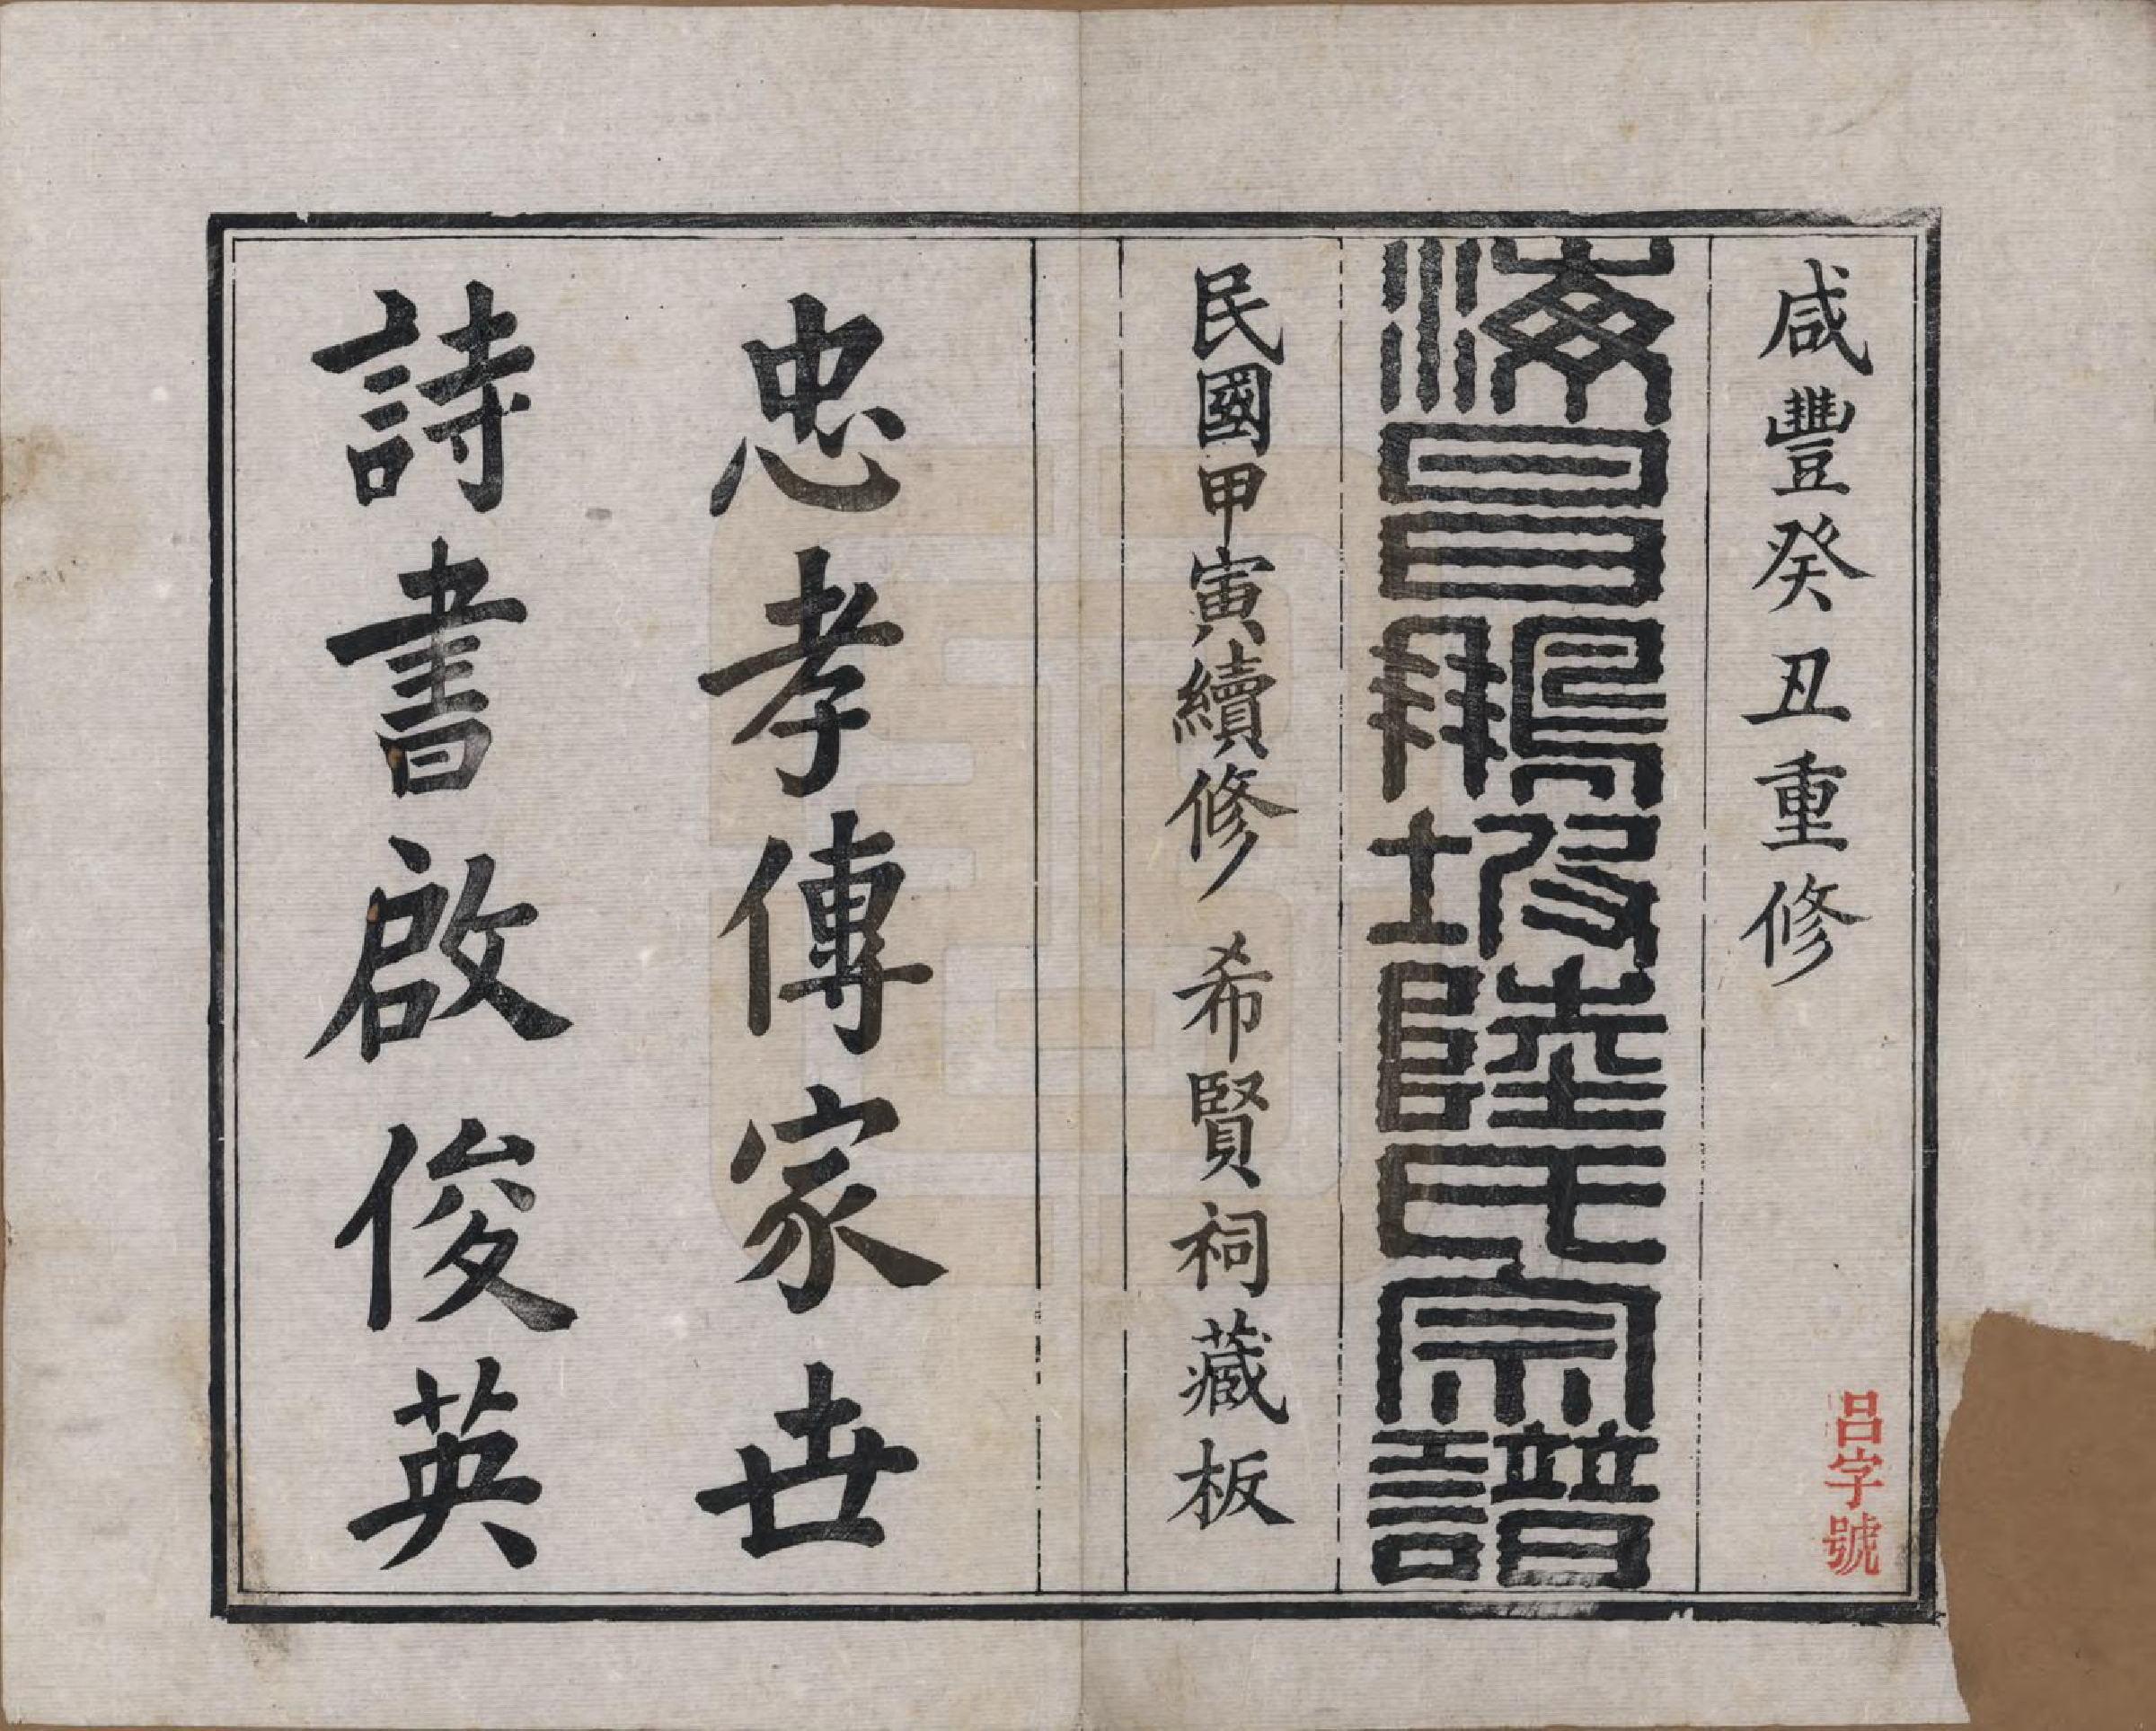 咸豐癸丑重修
呂字號
海昌鵬坡陸氏宗譜
民國甲寅續修 希賢祠藏板
忠孝傳家世
詩書啟俊英